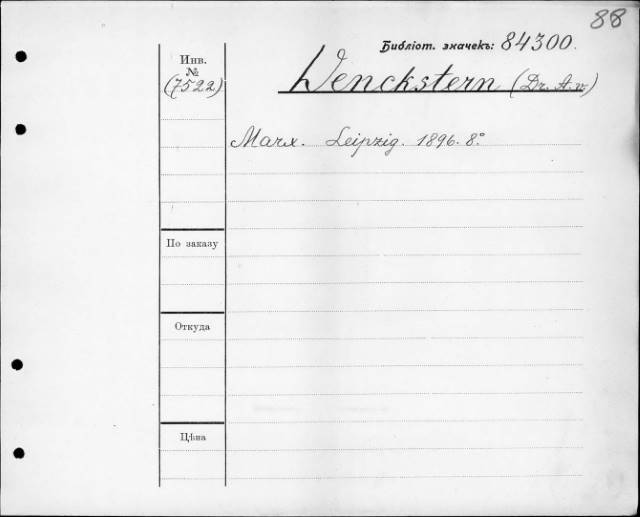 88
Библіот. значекъ: 84300.
Инв.
№
(7522)
Wenckstern (Dr. A. v.)
Marx. Leipzig. 1896. 8°
По заказу
Откуда
Цѣна